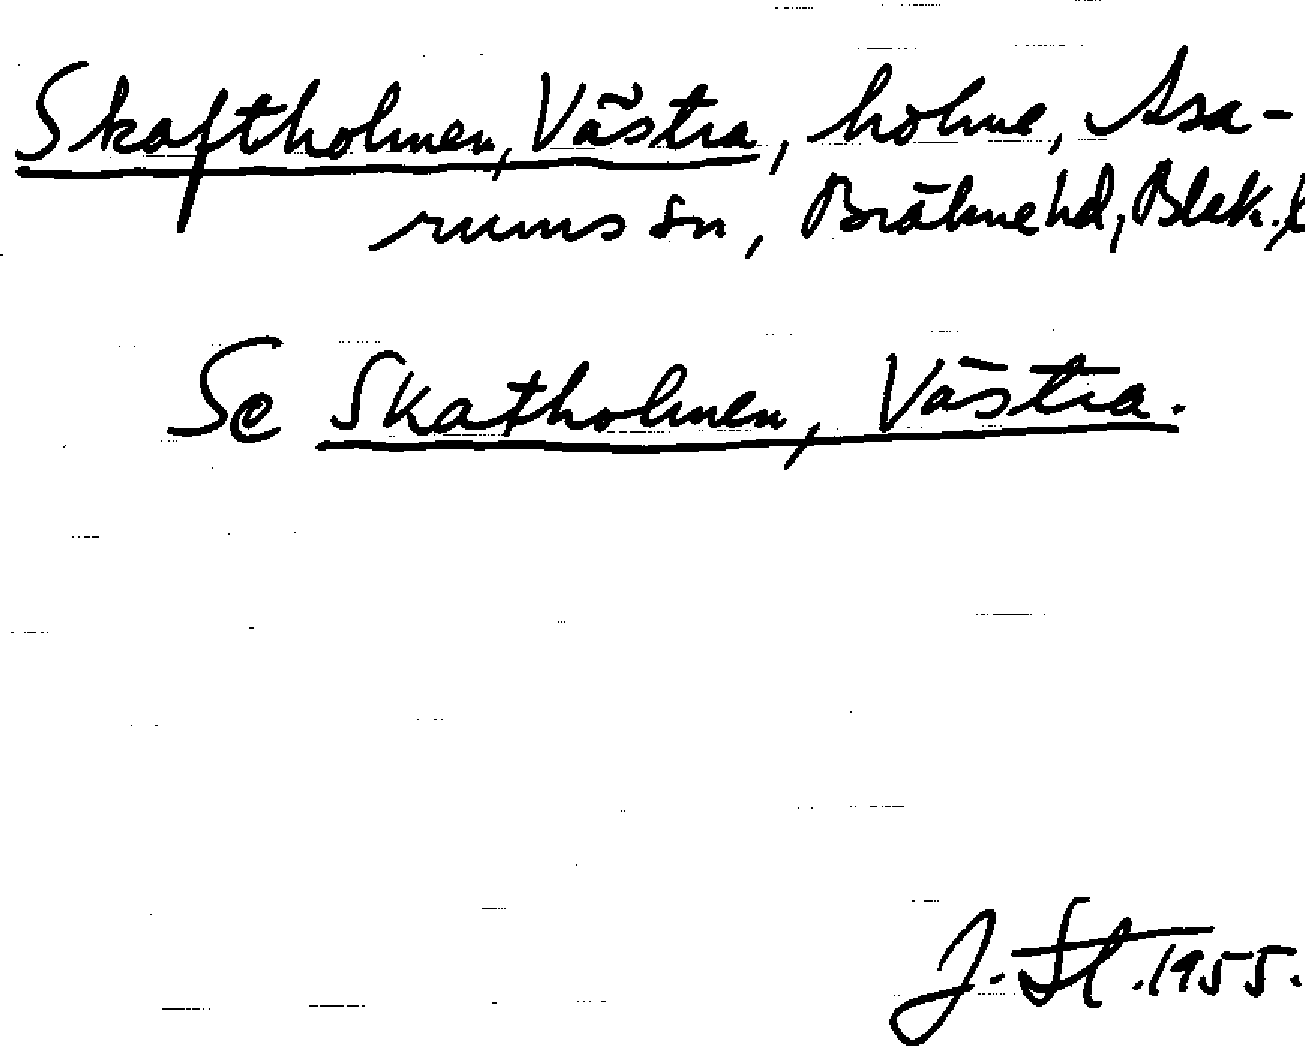 Skaftholmen, Västra, holme, Asa-
rums sn, Bräkne hd, Blek. l
Se Skatholmen, Västra.
J. St. 1955.